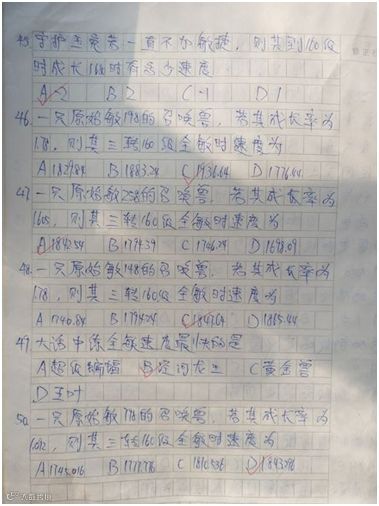 45. 守护至宠若一直不加敏捷，则其到160级
时成长1.68时有多少速度
A -2 B 2 C -1 D 1
46. 一只原始敏198的召唤兽，若其成长率为
1.78，则其三转160级全敏时速度为
A 1829.84 B 1883.24 C 1936.64 D 1776.44
47. 一只原始敏258的召唤兽，若其成长率为
1.605，则其三转160级全敏时速度为
A 1842.54 B 1794.39 C 1746.24 D 1698.09
48. 一只原始敏148的召唤兽，若其成长率为
1.78，则其三转160级全敏时速度为
A 1740.84 B 1794.24 C 1847.64 D 1865.44
49. 大话中除全敏速度最快的是
A 超级蝙蝠 B 龙 C 黄金兽
D 玉叶
50. 一只原始敏178的召唤兽，若其成长率为
则其三转160级全敏时速度为
A 1745.016 B 1777.776 C 1810.536 D